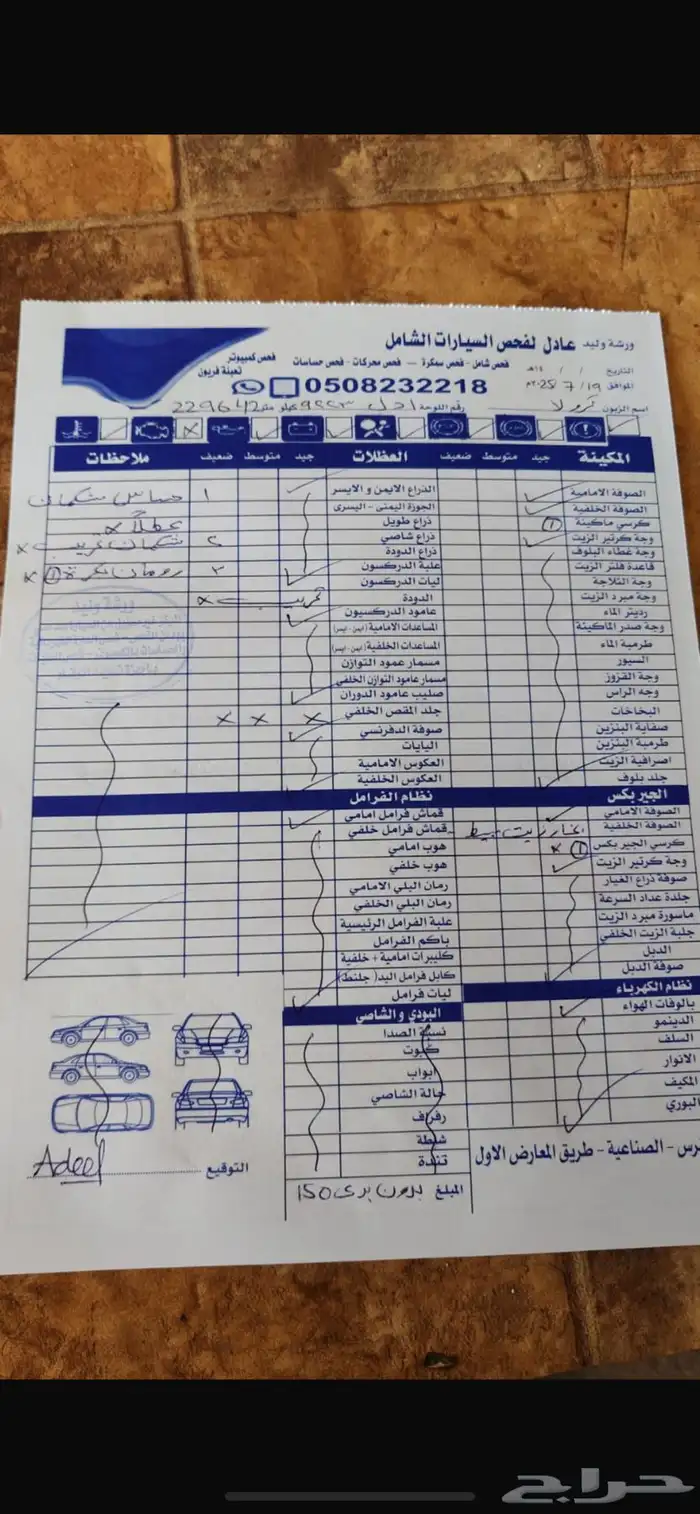 ورشة وليد عادل لفحص السيارات الشامل
فحص شامل - فحص سمكرة - فحص محركات - فحص حساسات
فحص كمبيوتر
تعبئة فريون
0508232218
التاريخ / / ١٤هـ
الموافق ١٩/ 7 / 25 ٢٠م
اسم الزبون كرولا رقم اللوحة ادل ٩٢٢٣ كيلو متر 229642
المكينة جيد متوسط ضعيف
الصوفة الامامية
الصوفة الخلفية
كرسي ماكينة ①
وجة كرتير الزيت
وجة غطاء البلوف
قاعدة فلتر الزيت
وجة الثلاجة
وجة مبرد الزيت
رديتر الماء
وجة صدر الماكينة
طرمبة الماء
السيور
وجة القزوز
وجه الراس
البخاخات
صفاية البنزين
طرمبة البنزين
اصرافية الزيت
جلد بلوف
الجير بكس
الصوفة الامامي
الصوفة الخلفية بخار زيت بسيط
كرسي الجير بكس ① ×
وجة كرتير الزيت
صوفة ذراع الغيار
جلدة عداد السرعة
ماسورة مبرد الزيت
جلبة الزيت الخلفي
الدبل
صوفة الدبل
نظام الكهرباء
بالوفات الهواء
الدينمو
السلف
الانوار
المكيف
البوري
العظلات جيد متوسط ضعيف
الذراع الايمن و الايسر
الجوزة اليمنى - اليسرى
ذراع طويل
ذراع شاصي
ذراع الدودة
علبة الدركسون
ليات الدركسون
الدودة تهريب ×
عامود الدركسيون
المساعدات الامامية (ايمن - ايسر)
المساعدات الخلفية (ايمن - ايسر)
مسمار عمود التوازن
مسمار عامود التوازن الخلفي
صليب عامود الدوران
جلد المقص الخلفي × × ×
صوفة الدفرنسي
اليايات
العكوس الامامية
العكوس الخلفية
نظام الفرامل
قماش فرامل امامي
قماش فرامل خلفي
هوب امامي
هوب خلفي
رمان البلي الامامي
رمان البلي الخلفي
علبة الفرامل الرئيسية
باكم الفرامل
كليبرات امامية + خلفية
كابل فرامل اليد (جلنط)
ليات فرامل
البودي و الشاصي
نسبة الصدا
كبوت
ابواب
حالة الشاصي
رفرف
شنطة
تندة
المبلغ بدون بدى 150
ملاحظات
١ حساس شكمان
عطلان ×
٢ شكمان تهريب ×
٣ رومان بكرة ① ×
ورشة وليد
التوقيع Adeel
رس - الصناعية - طريق المعارض الاول
حراج